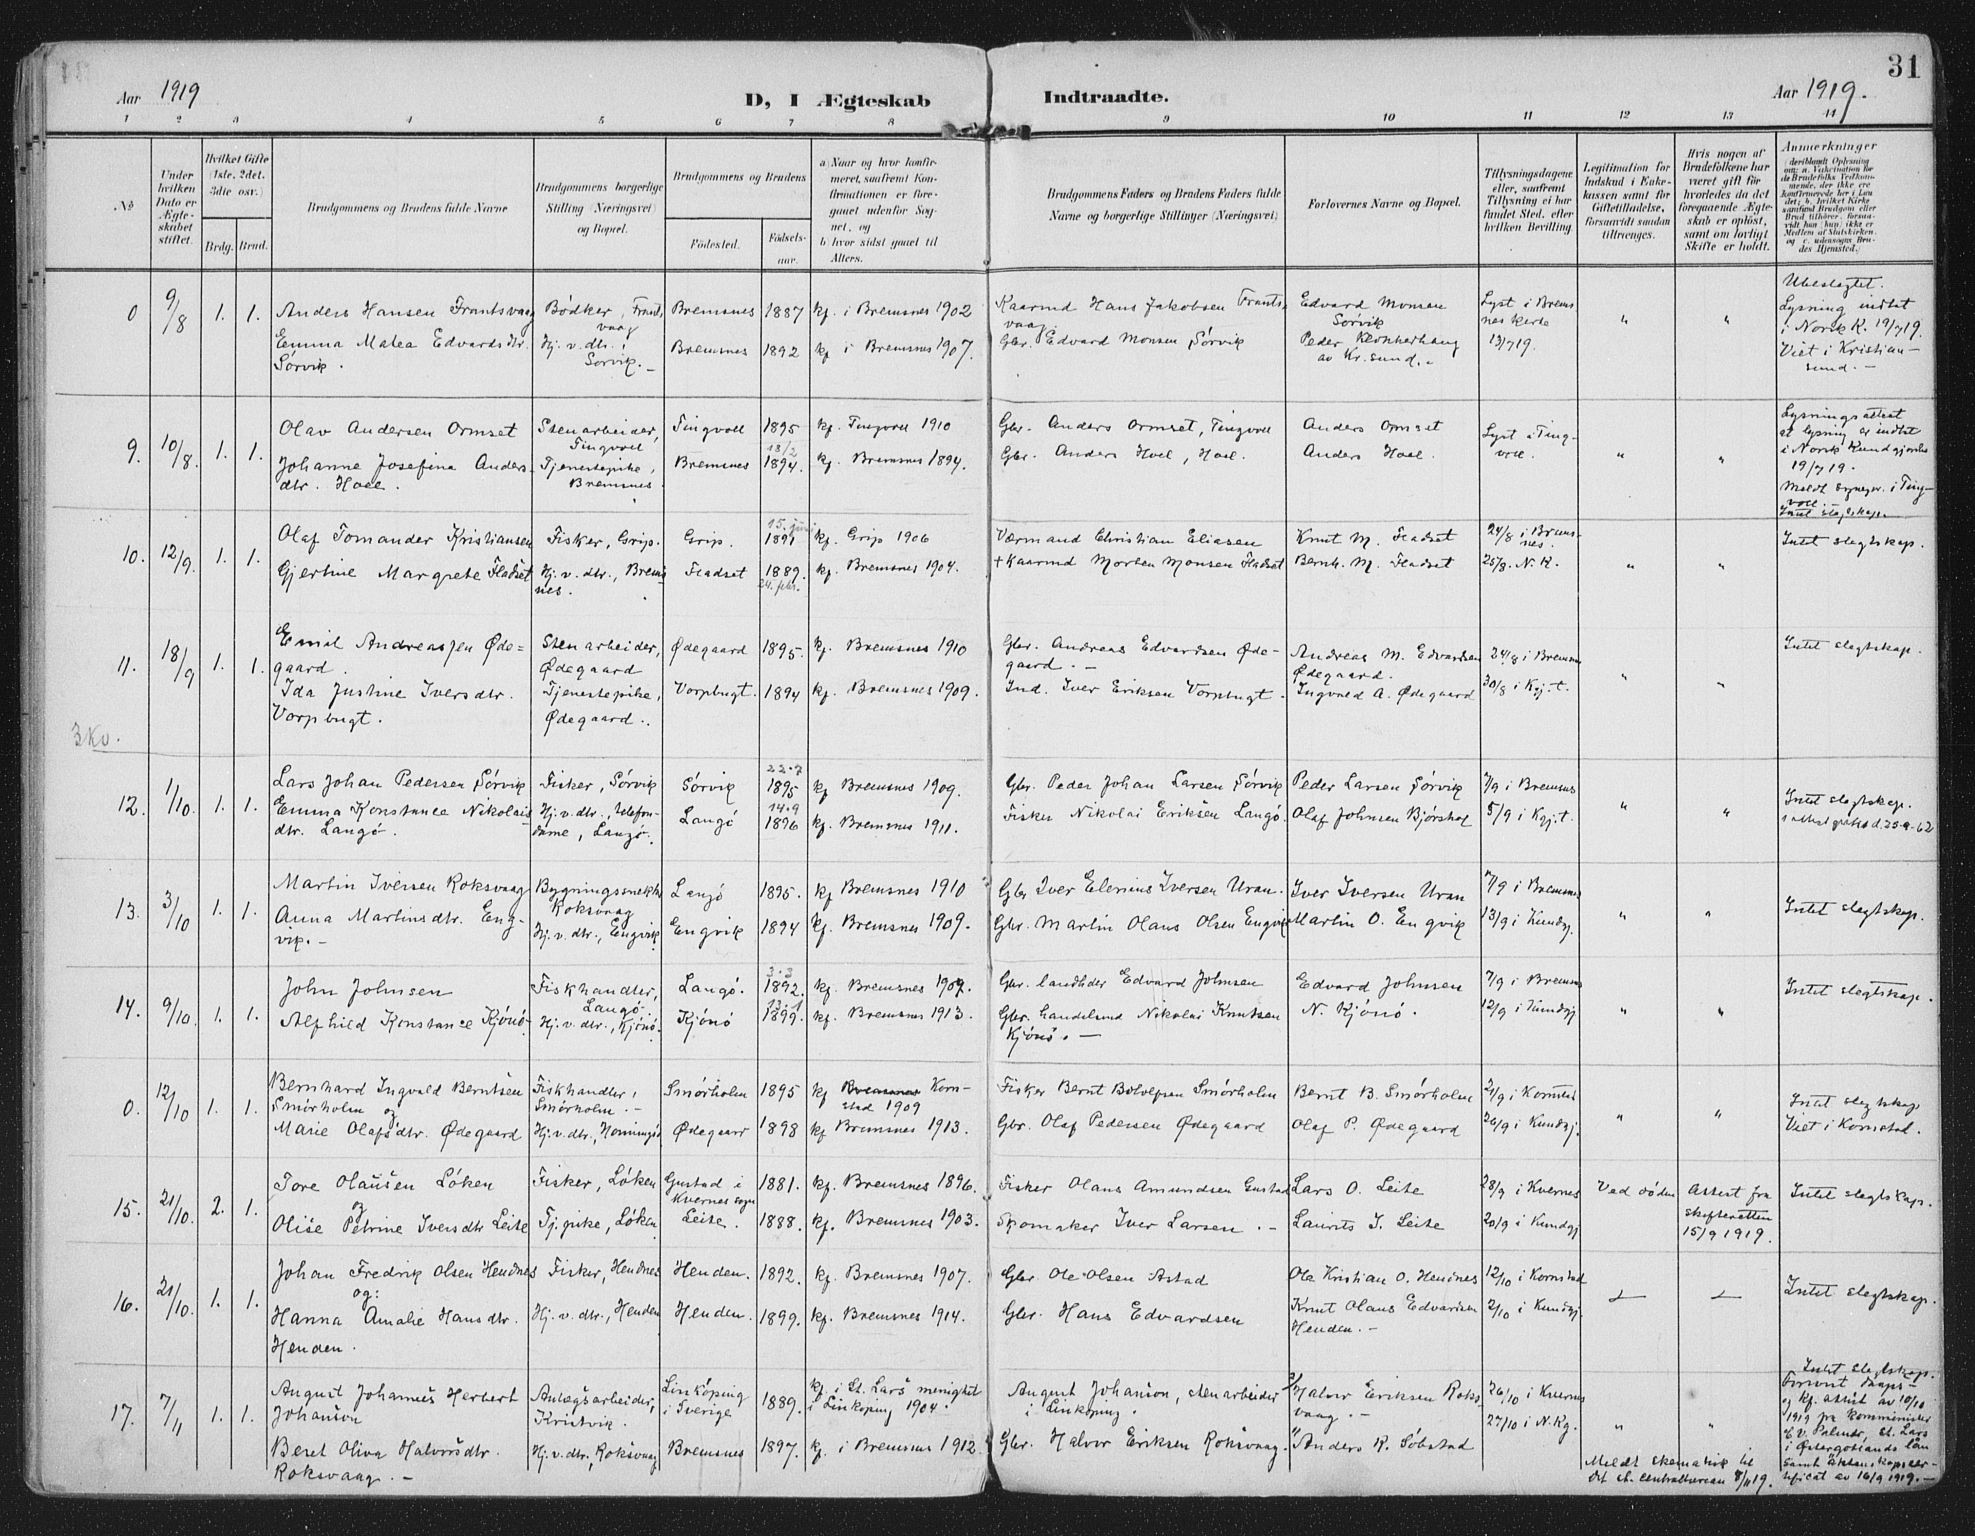 31
Aar 1919
D, I Ægteskab Indtraadte.
Aar 1919.
1 2 3 4 5 6 7 8 9 10 11 12 13 14
No
Under hvilken Dato er Ægteskabet stiftet.
Hvilket Gifte (1ste, 2det, 3die osv.)
Brdg. Brud.
Brudgommens og Brudens fulde Navne
Brudgommens borgerlige Stilling (Næringsvei) og Bopæl.
Brudgommens og Brudens
Fødested. Fødselsaar.
a) Naar og hvor konfirmeret, saafremt Konfirmationen er foregaaet udenfor Sognet, og
b) hvor sidst gaaet til Alters.
Brudgommens Faders og Brudens Faders fulde Navne og borgerlige Stillinger (Næringsvei)
Forlovernes Navne og Bopæl.
Tillysningsdagene eller, saafremt Tillysning ei har fundet Sted, efter hvilken Bevilling.
Legitimation for Indskud i Enkekassen samt for Giftetilladelse, forsaavidt saadan tiltrænges.
Hvis nogen af Brudefolkene har været gift før hvorledes da det foregaaende Ægteskab er opløst, samt om lovligt Skifte er holdt.
Anmærkninger
0 9/8 1. 1. Anders Hansen Frantsvaag Bødker, Frantsvaag Bremsnes 1887 kf. i Bremsnes 1902 Kaarmd Hans Jakobsen Frantsvaag Edvard Monsen Sørvik Lyst i Bremsnes kirke 13/7 19. " " Ubeslegtet. Lysning indtat i Norsk K. 19/7 19. Viet i Kristiansund. –
Emma Matea Edvardsdtr. Sørvik. Hj. v. dtr., Sørvik. – Bremsnes 1892 kf i Bremsnes 1907. Gbr. Edvard Monsen Sørvik Peder Kl av Kr.sund. –
9. 10/8. 1. 1. Olav Andersen Ormset Stenarbeider, Tingvoll Tingvoll 1895 kf. Tingvoll 1910 Gbr. Anders Ormset, Tingvoll Anders Ormset Lyst i Tingvoll. " " Lysningsattest at lysning er indtat i Norsk Kundgjørelse 19/7 19.
Johanne Josefina Andersdtr. Hoel. Tjenestepike, Bremsnes. Bremsnes 18/2 1894. kf. Bremsnes 1894. Gbr. Anders Hoel, Hoel. Anders Hoel. Meldt i Tingvoll. – Intet slegtskap.
10. 12/9. 1. 1. Olaf Tomander Kristiansen Fisker, Grip. Grip. 15. juni 1891 kf. Grip 1906 Værmand Christian Eliasen Knut M. Fladset 24/8 i Bremsnes. Intet slegtskap.
Gjertine Margrete Fladset Hj. v. dtr., Bremsnes. Fladset 1889. 24. febr. kf. Bremsnes 1904. + Kaarmd Morten Monsen Fladset Bernh. M. Fladset 25/8. N. K. " "
11. 18/9 1. 1. Emil Andreassen Ødegaard. Stenarbeider, Ødegaard Ødegaard 1895. kf. Bremsnes 1910 Gbr. Andreas Edvardsen Ødegaard. – Andreas M. Edvardsen Ødegaard. 24/8 i Bremsnes Intet slegtskap.
Ida Justine Iversdtr. Vorpbugt. Tjenestepike, Ødegaard.. Vorpbugt. 1894 kf. Bremsnes 1909. Ind. Iver Eriksen Vorpbugt. Ingvald A. Ødegaard 30/8 i Kgj.t. " "
3 Ko.
12. 1/10. 1. 1. Lars Johan Pedersen Sørvik Fisker, Sørvik Sørvik 22.7 1895 kf. Bremsnes 1909. Gbr. Peder Johan Larsen Sørvik Peder Larsen Sørvik 7/9 i Bremsnes
Emma Konstance Nikolaisdtr. Langø. Hj. v. dtr., telefondame, Langø. Langø 14.9 1896 kf. Bremsnes 1911. Fisker Nikolai Eriksen Langø. Olaf Johnsen Bjørshol 5/9 i Kgj.t. " " Intet slegtskap.
13. 3/10 1. 1. Martin Iversen Roksvaag Bygningssnekker Roksvaag Langø 1895. kf Bremsnes 1910 Gbr Iver Elenius Iversen Uran. Iver Iversen Uran 7/9 i Bremsnes
Anna Martinsdtr. Engvik. – Hj. v. dtr., Engvik Engvik 1894 kf. Bremsnes 1909. Gbr. Martin Olaus Olsen Engvik Martin O. Engvik 13/9 i Kundgj. " " Intet slegtskap.
14. 9/10. 1. 1. John Johnsen Fiskhandler, Langø Langø. 3.3 1892. kf. Bremsnes 1907. Gbr. landhdler Edvard Johnsen Edvard Johnsen 7/9 i Bremsnes Intet slegtskap.
Alfhild Konstance Kjønø. Hj. v. dtr., Kjønø. Kjønø 13.1 1899. kf. Bremsnes 1913. Gbr. handelsmd Nikolai Knutsen Kjønø. – N. Kjønø. 12/9 i Kundgj " "
0. 12/10 1. 1. Bernhard Ingvald Berntsen Smørholm og Fiskhandler, Smørholm. – Smørholm 1895 kf Bremsnes Kornstad 1909 Fisker Bernt Smørholm Bernt B. Smørholm 21/9 i Kornstad Intet slegtskap
Marie Olafsdtr. Ødegaard Hj. v. dtr., Honningsø Ødegaard 1898 kf Bremsnes 1913. Gbr. Olaf Pedersen Ødegaard Olaf P. Ødegaard 26/9 i Kundgj. " " Viet i Kornstad.
15. 21/10. 2. 1. Tore Olausen Løken og Fisker, Løken Gustad i Kvernes sogn 1881. kf. Bremsnes 1896. Fisker Olaus Amundsen Gustad Lars O. Leite 28/9 i Kvernes Ved døden Attest fra skifteretten 15/9 1919. Intet slegtskap.
Olise Petrine Iversdtr Leite Tj.pike, Løken Leite. 1888. kf. Bremsnes 1903. Skomaker Iver Larsen. – Laurits I. Leite 20/9 i Kundgj
16. 21/10. 1. 1. Johan Fredrik Olsen Hendnes og: Fisker, Hendnes Henden. 1892. kf. Bremsnes 1907. Gbr. Ole Olsen Astad Ole Kristian O. Hendnes 12/10 i Kornstad Intet slegtskap.
Hanna Amalie Hansdtr. Henden. Hj. v. dtr., Henden Henden. 1899. kf. Bremsnes 1914. Gbr. Hans Edvardsen Knut Olaus Edvardsen Henden. – 2/10 i Kundgj.
17. 7/11 1. 1. August Johannes Herbert Johanson Anlægsarbeider, Kristvik. Linköping i Sverige 1889. kf. i St. Lars menighet i Linköping 1904. August Johanson, stenarbeider i Linköping. Halvor Eriksen Roksvaag. – 26/10 i Kvernes " " Intet slegtskap. Forevist daaps- og kf. attest av 10/10 1919 fra komminister E V. Palmér, St. Lars i Östergotlands län samt Äktenskapscertificat av 16/9 1919. –
Beret Oliva Halvorsdtr. Roksvaag. – Hj. v. dtr. Roksvaag Bremsnes 1897. kf. i Bremsnes 1912. Gbr. Halvor Eriksen Roksvaag. Anders R. Søbstad 27/10 i N. Kg.
Meldt skematisk til det st. centralbureau 8/11 19.